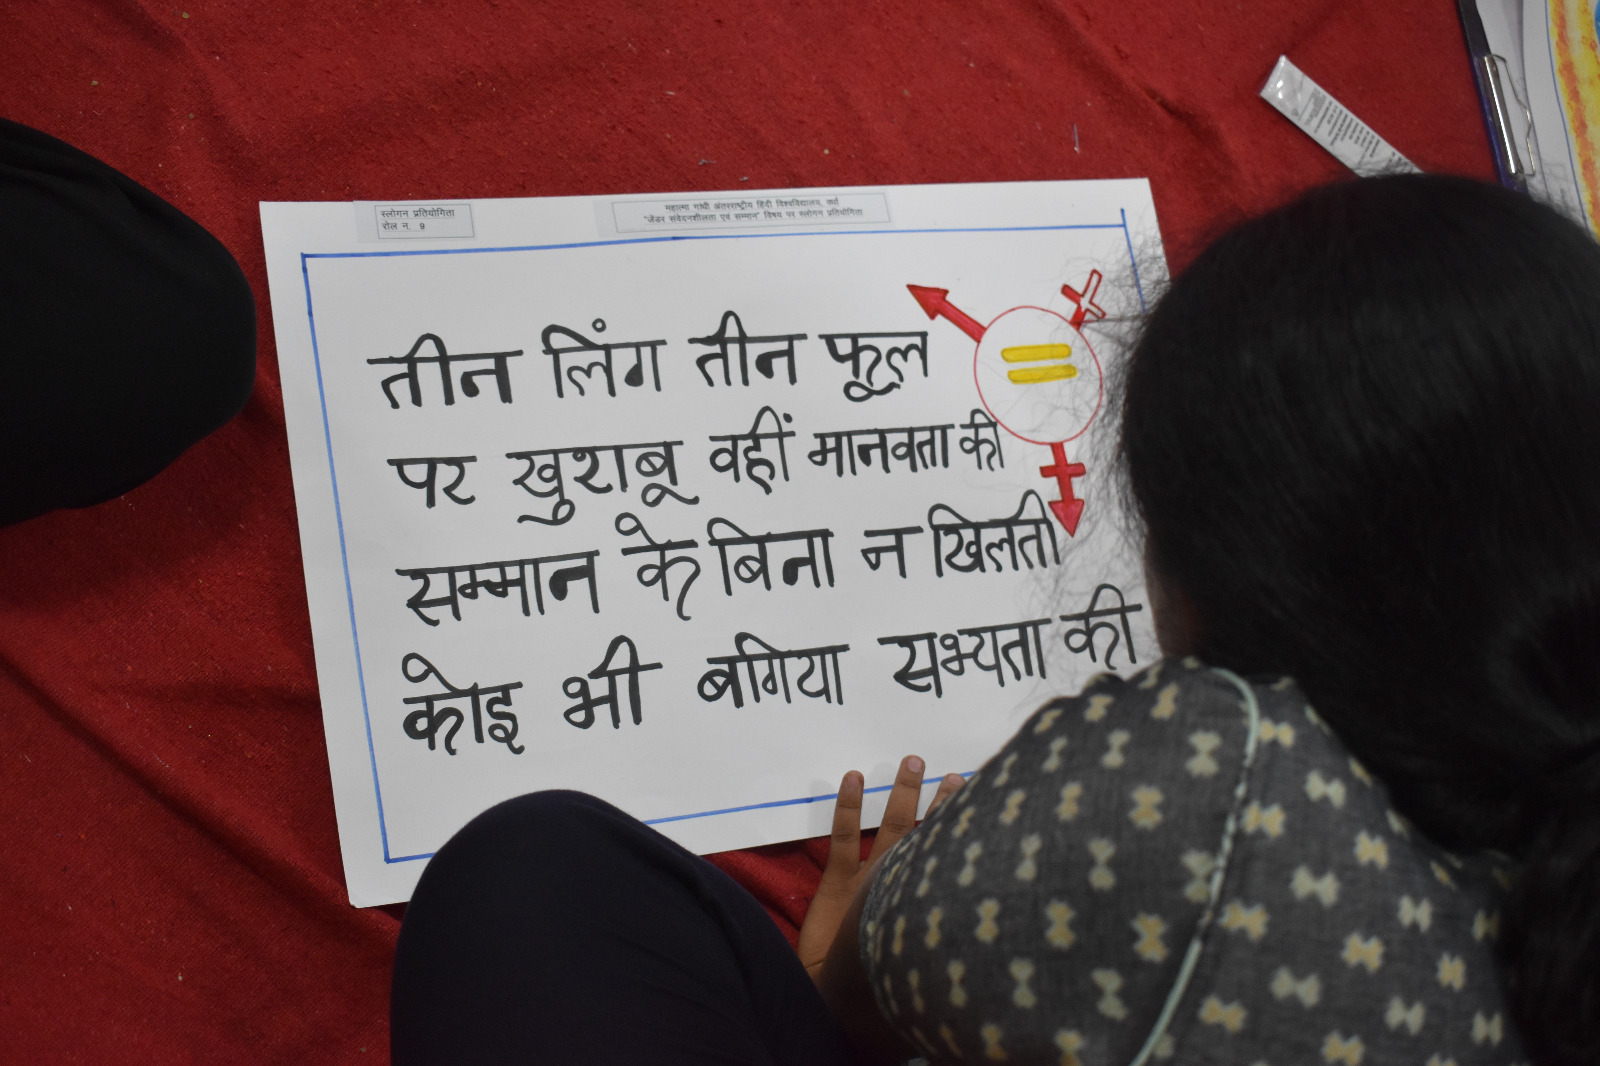 स्लोगन प्रतियोगिता
रोल न. 9
महात्मा गांधी अंतरराष्ट्रीय हिंदी विश्वविद्यालय, वर्धा
"जेंडर संवेदनशीलता एवं सम्मान" विषय पर स्लोगन प्रतियोगिता
तीन लिंग तीन फूल
पर खुशबू वहीं मानवता की
सम्मान के बिना न खिलती
कोइ भी बगिया सभ्यता की